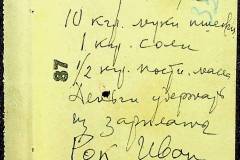 10 кгр. муки пшенич
1 кгр. соли
87
1/2 кгр. пост. масла
Деньги удержать
из зарплаты
Рок Иван